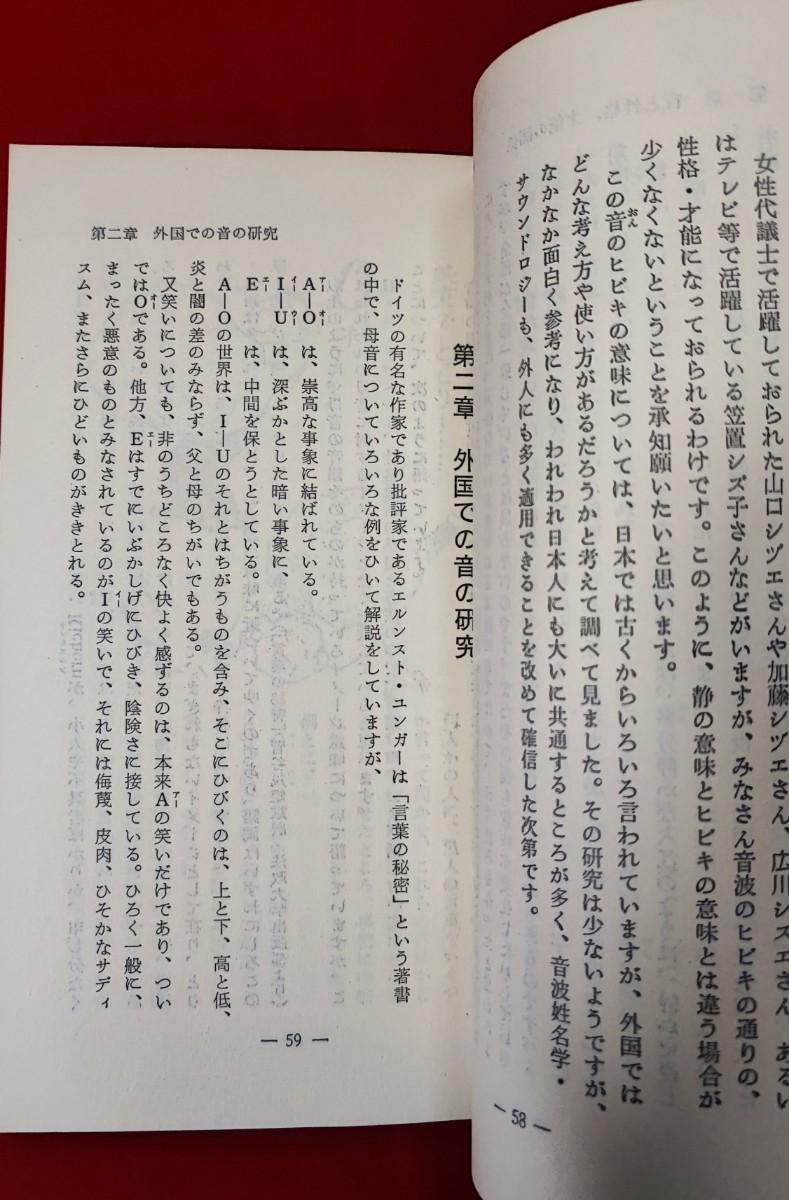 女性代議士で活躍しておられた山口シヅエさんや加藤シヅエさん、広川シズエさん、あるい
はテレビ等で活躍している笠置シズ子さんなどがいますが、みなさん音波のヒビキの通りの、
性格・才能になっておられるわけです。このように、静の意味とヒビキの意味とは違う場合が
少くなくないということを承知願いたいと思います。
この音のヒビキの意味については、日本では古くからいろいろ言われていますが、外国では
おん
どんな考え方や使い方があるだろうかと考えて調べて見ました。その研究は少ないようですが、
なかなか面白く参考になり、われわれ日本人にも大いに共通するところが多く、音波姓名学・
サウンドロジーも、外人にも多く適用できることを改めて確信した次第です。
― 58 ―
第二章 外国での音の研究
第二章 外国での音の研究
ドイツの有名な作家であり批評家であるエルンスト・ユンガーは「言葉の秘密」という著書
の中で、母音についていろいろな例をひいて解説をしていますが、
A―Oは、崇高な事象に結ばれている。
アー オー
I―Uは、深ぶかとした暗い事象に、
イー ウー
Eは、中間を保とうとしている。
エー
A―Oの世界は、I―Uのそれとはちがうものを含み、そこにひびくのは、上と下、高と低、
炎と闇の差のみならず、父と母のちがいでもある。
又笑いについても、非のうちどころなく快よく感ずるのは、本来Aの笑いだけであり、つい
アー
ではOである。他方、Eはすでにいぶかしげにひびき、陰険さに接している。ひろく一般に、
オー エー
まったく悪意のものとみなされているのがIの笑いで、それには侮蔑、皮肉、ひそかなサディ
イー
スム、またさらにひどいものがききとれる。
― 59 ―